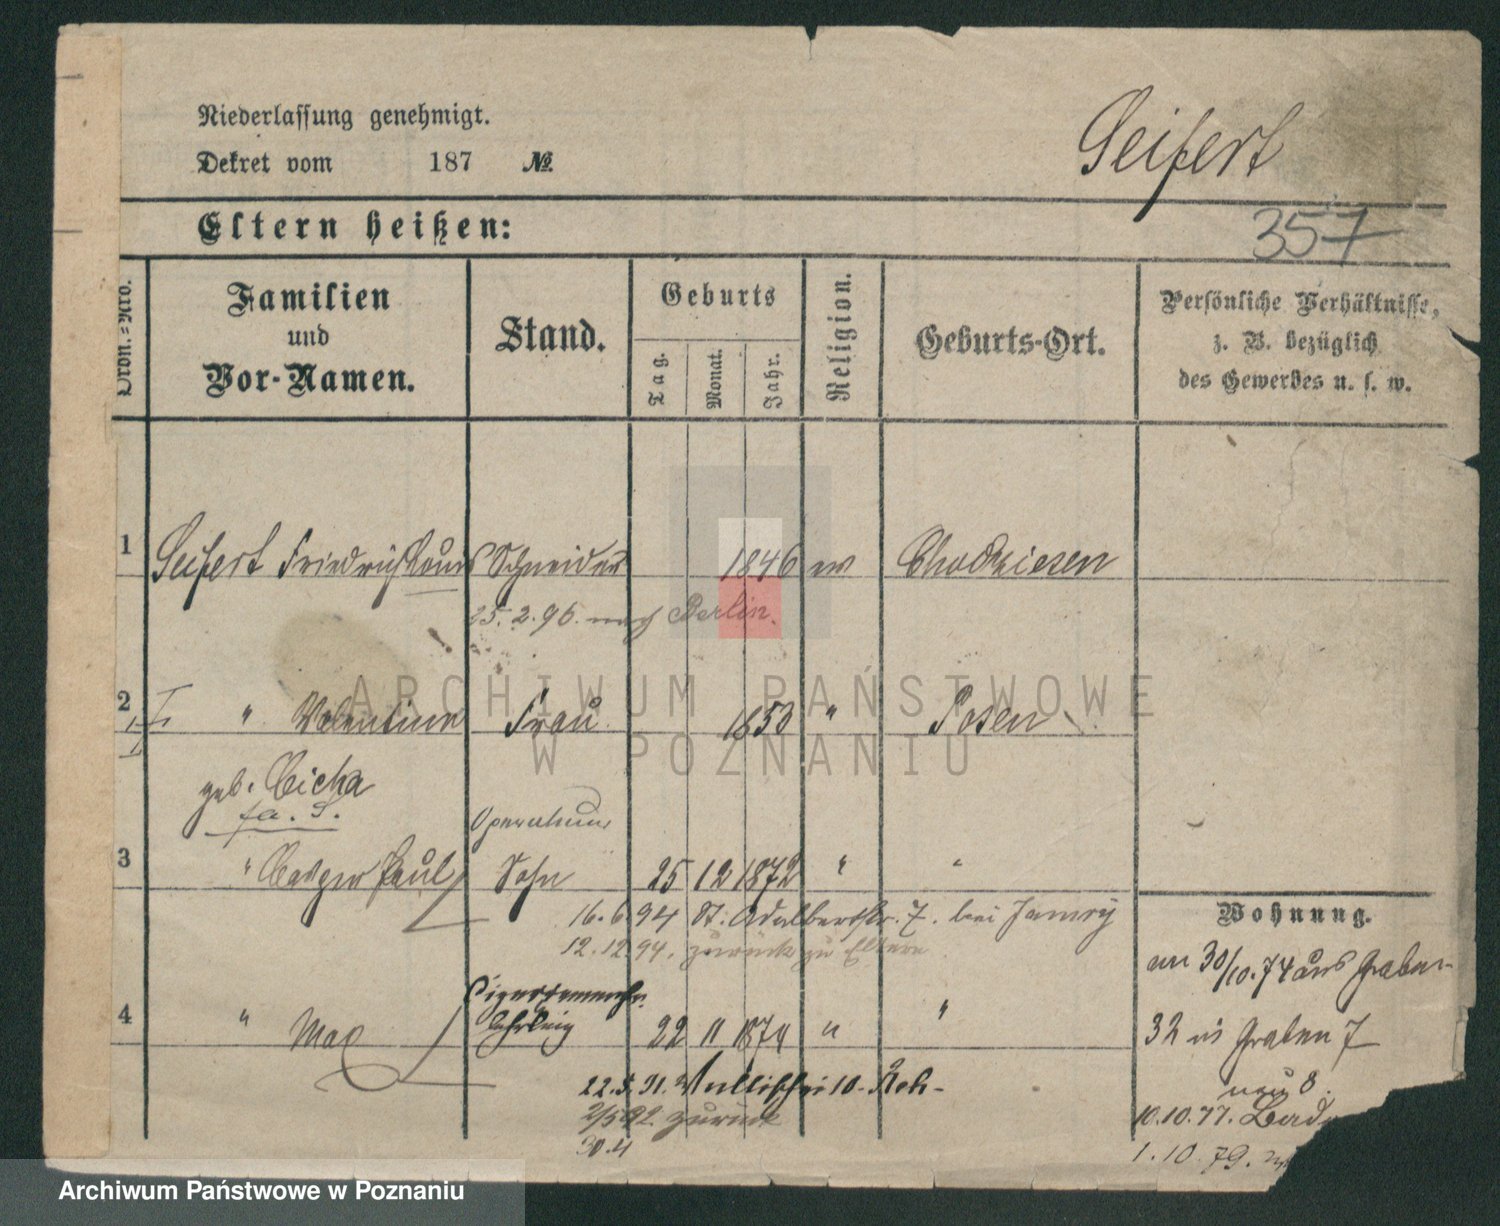 Niederlassung genehmigt.
Seifert
Dekret vom 187 №
Eltern heißen:
357
Ordn.-Nro.
Familien
und
Vor-Namen.
Stand.
Geburts
Tag.
Monat.
Jahr.
Religion.
Geburts-Ort.
Persönliche Verhältnisse,
z. B. bezüglich
des Gewerbes u. s. w.
1 Seifert Friedrich Louis Schneider 1846 ev Chodziesen
25. 2. 96. nach Berlin.
2 " Valentine Frau 1853 " Posen
geb. Cicha
3 " Paul Sohn 25 12 1872 " "
Wohnung.
16. 6. 94 St. Adalbertstr. 7. bei
12. 12. 94. zurück zu Eltern
30/10. 74 aus Graben
4 " Max 22 11 1874 " "
32 in Graben 7
neu 8.
10. 10. 77.
zurück
30.4
1. 10. 79.
ARCHIWUM PAŃSTWOWE
W POZNANIU
Archiwum Państwowe w Poznaniu